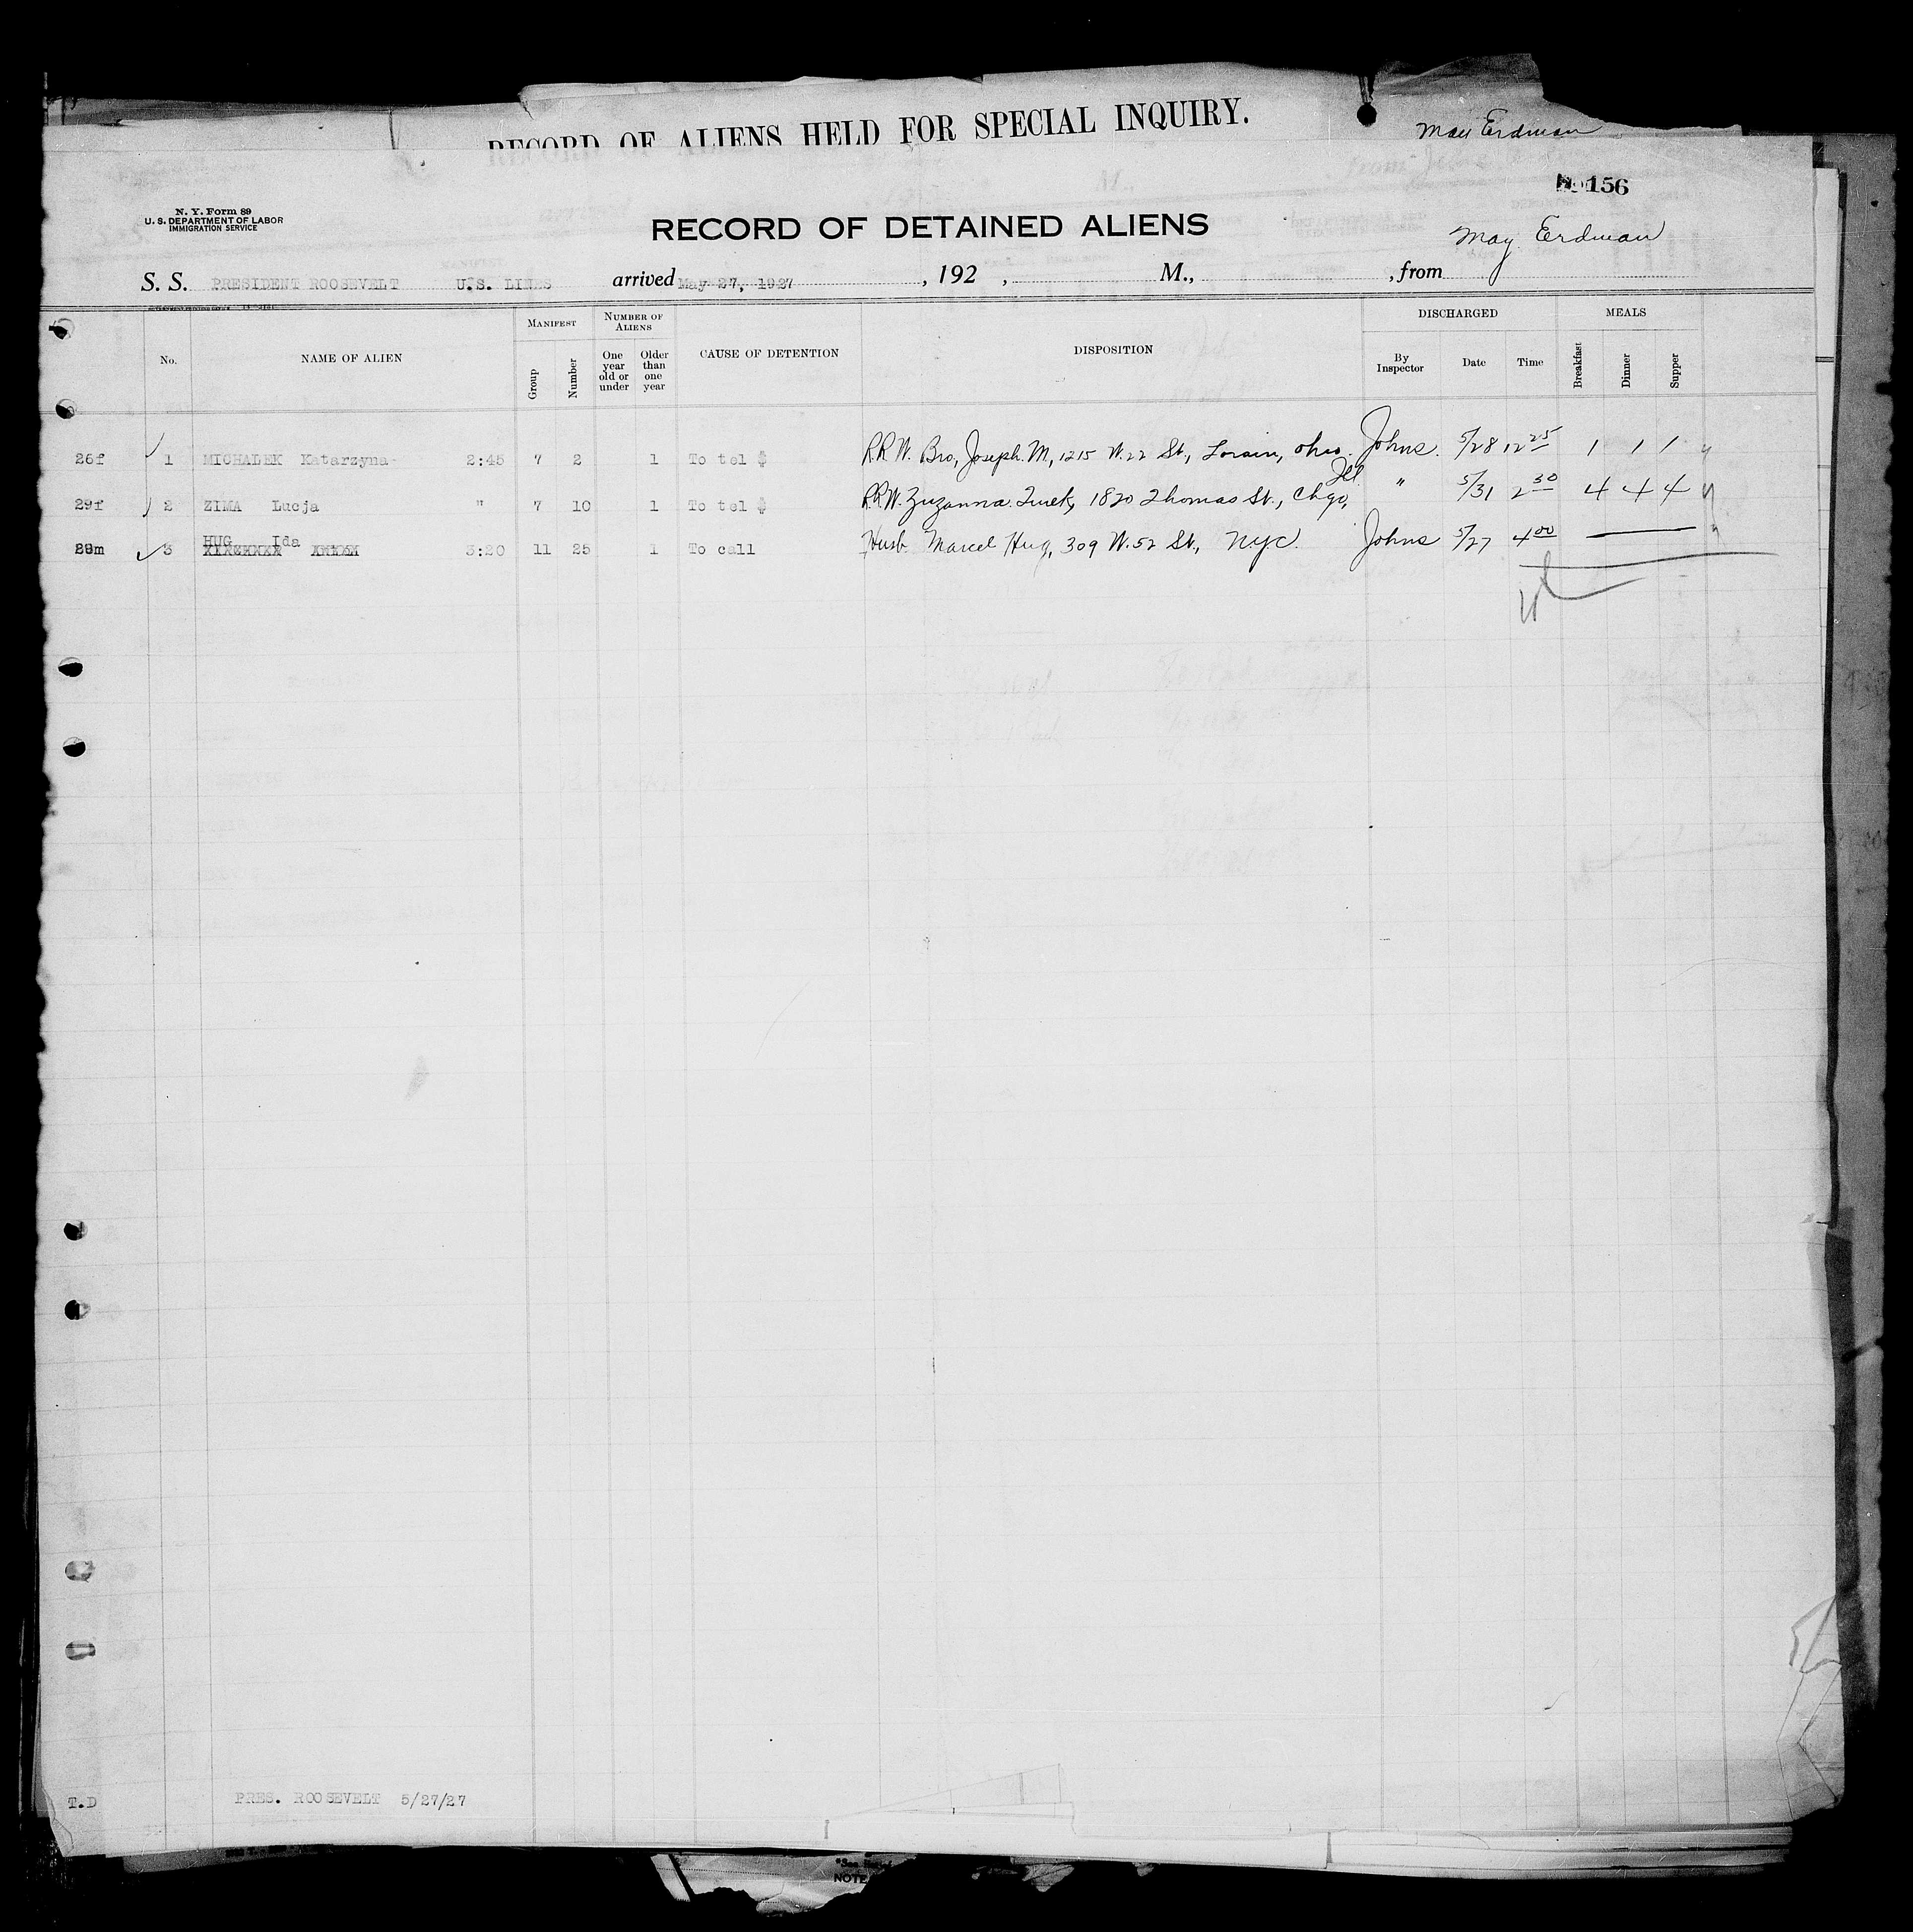 RECORD OF ALIENS HELD FOR SPECIAL INQUIRY.
May Erdman
156
N. Y. Form 89
U. S. DEPARTMENT OF LABOR
IMMIGRATION SERVICE
RECORD OF DETAINED ALIENS
May Erdman
S. S. PRESIDENT ROOSEVELT U.S. LINES arrived May 27, 1927, 192 , M., , from
No. NAME OF ALIEN MANIFEST Group Number NUMBER OF ALIENS One year old or under Older than one year CAUSE OF DETENTION DISPOSITION DISCHARGED By Inspector Date Time MEALS Breakfast Dinner Supper
26f 1 MICHALEK Katarzyna 2:45 7 2 1 To tel $ R.R.W. Bro, Joseph M, 1215 W. 22 St., Lorain, Ohio. Johns. 5/28 12 25 1 1 1
29f 2 ZIMA Lucja " 7 10 1 To tel $ R.R.W. Zuzanna 1820 Thomas St., Chgo, Ill " 5/31 2 30 4 4 4
29m 3 HUG Ida 3:20 11 25 1 To call Husb Marcel Hug, 309 W. 52 St., N.Y.C. Johns 5/27 4 00
T.D PRES. ROOSEVELT 5/27/27
NOTE